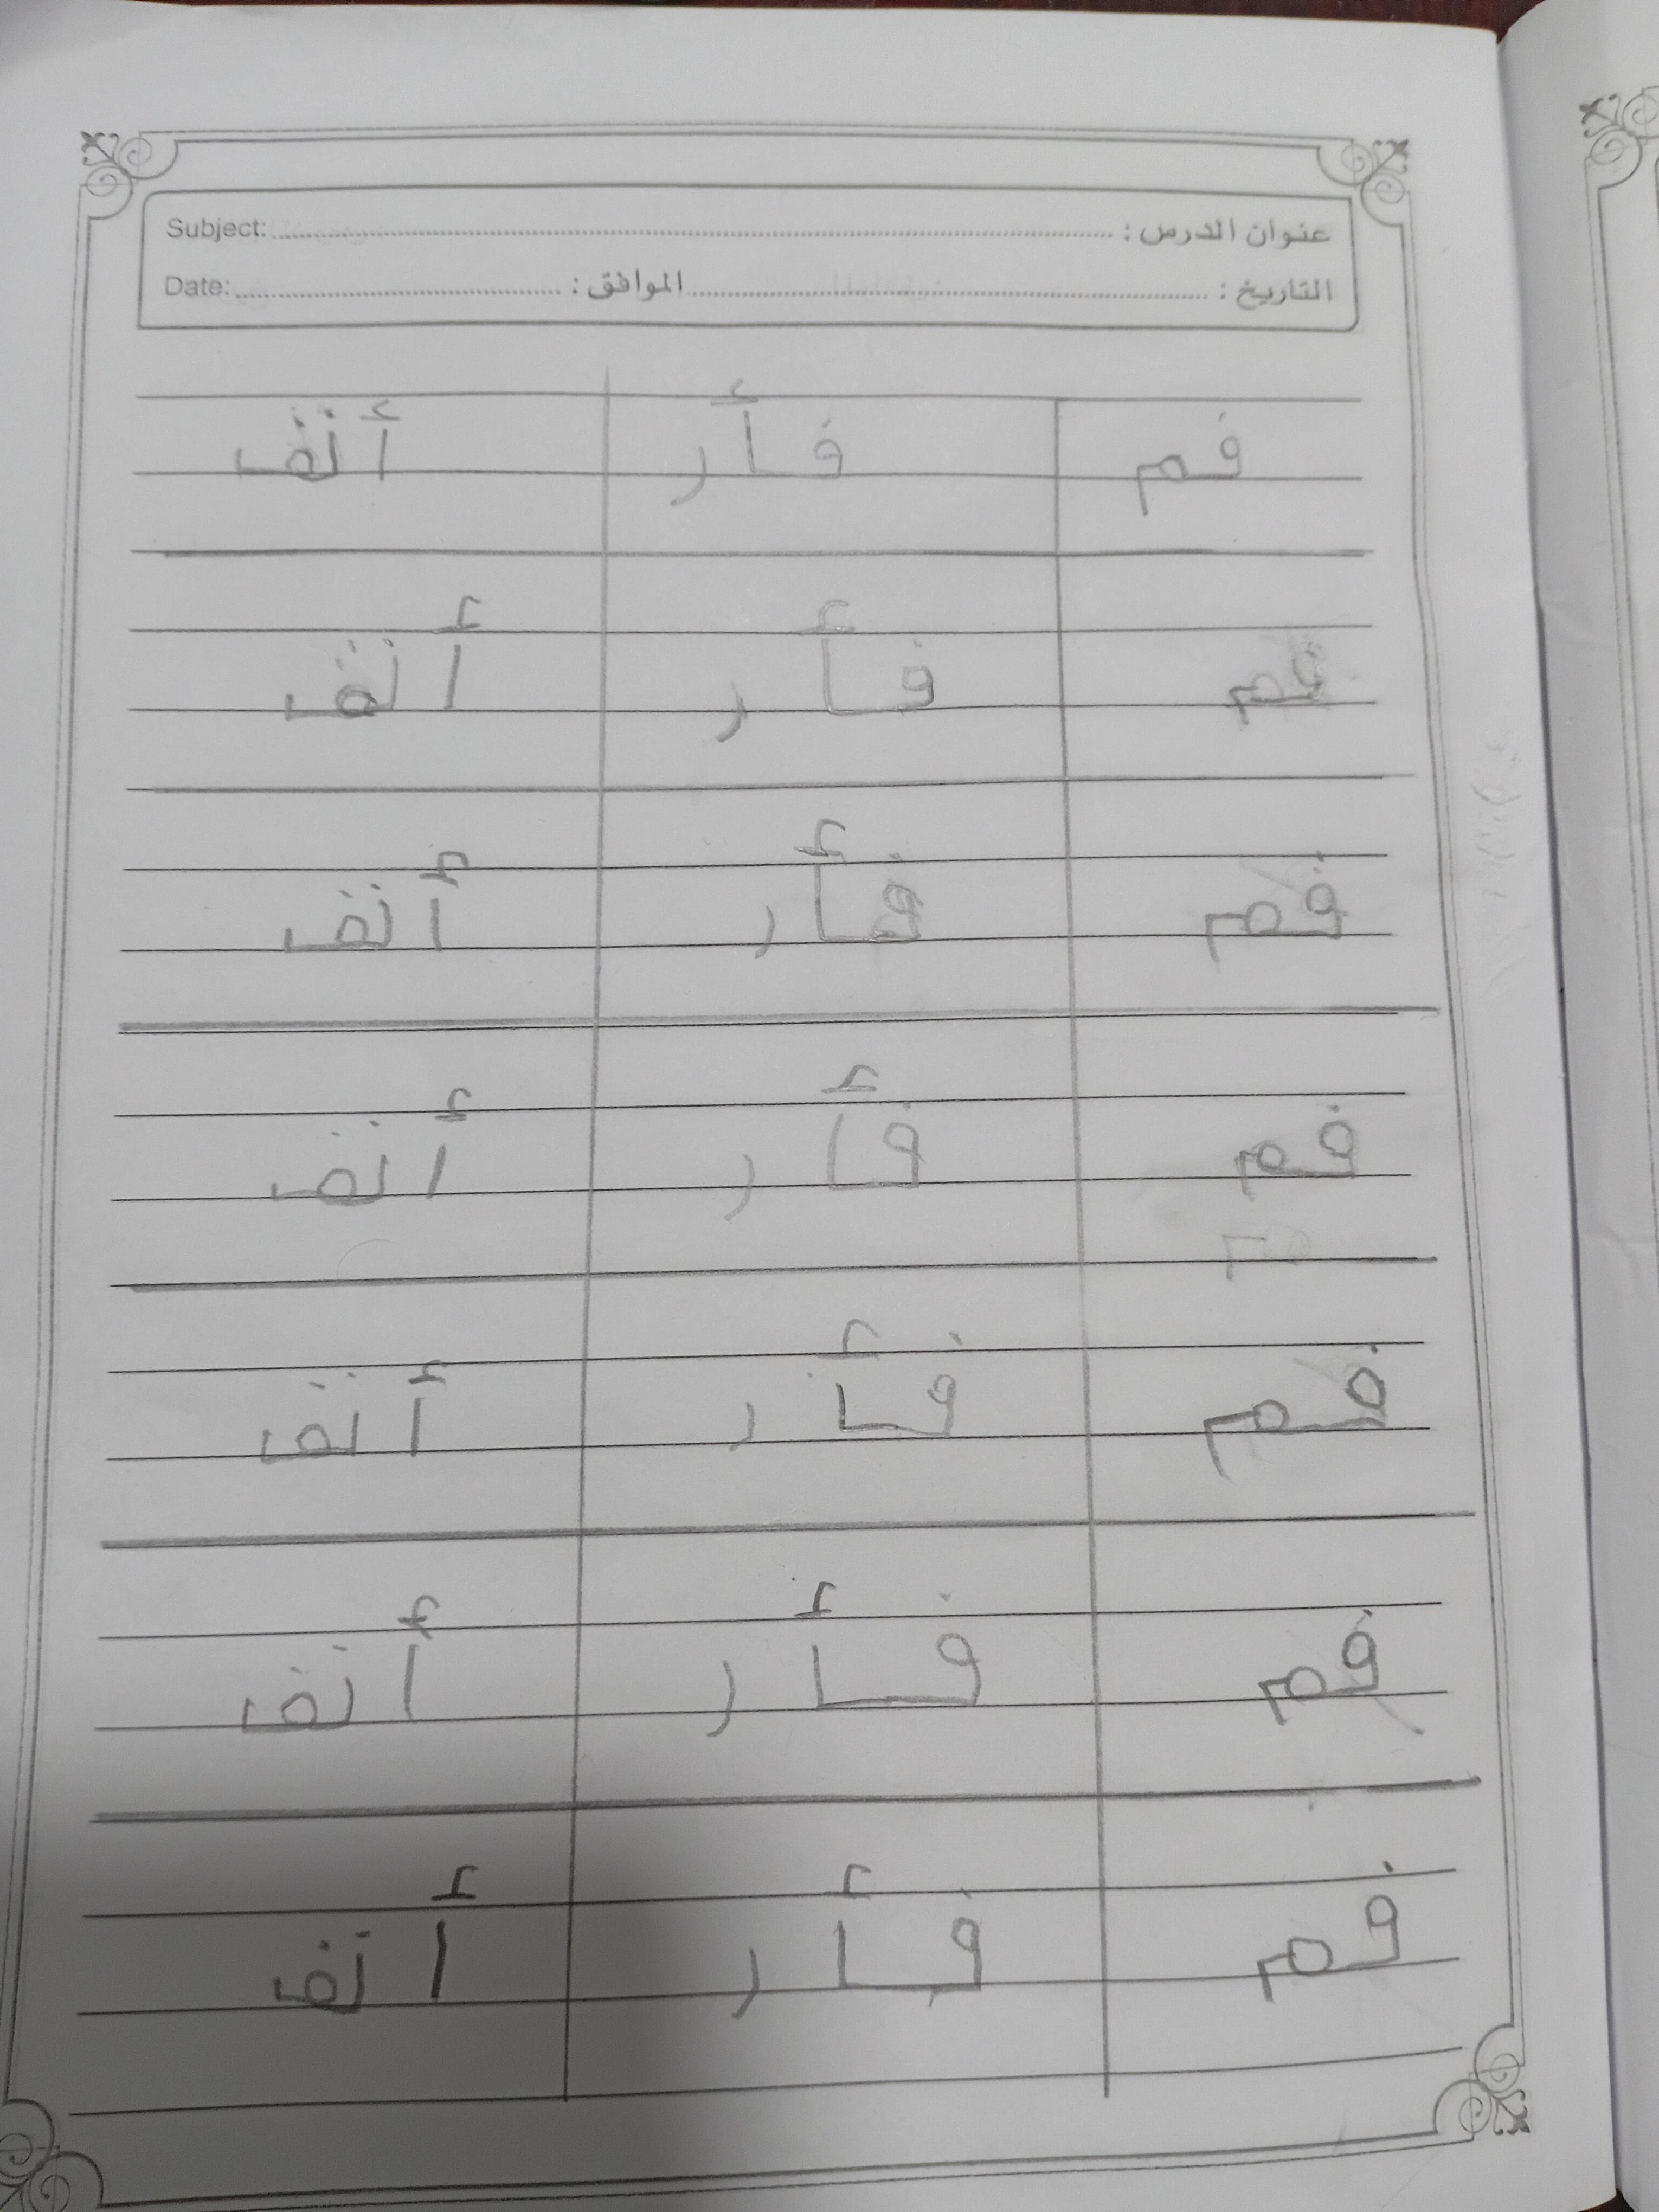 عنوان الدرس : Subject:
التاريخ : الموافق : Date:
فم فأر أنف
فم فأر أنف
فم فأر أنف
فم فأر أنف
فم فأر أنف
فم فأر أنف
فم فأر أنف